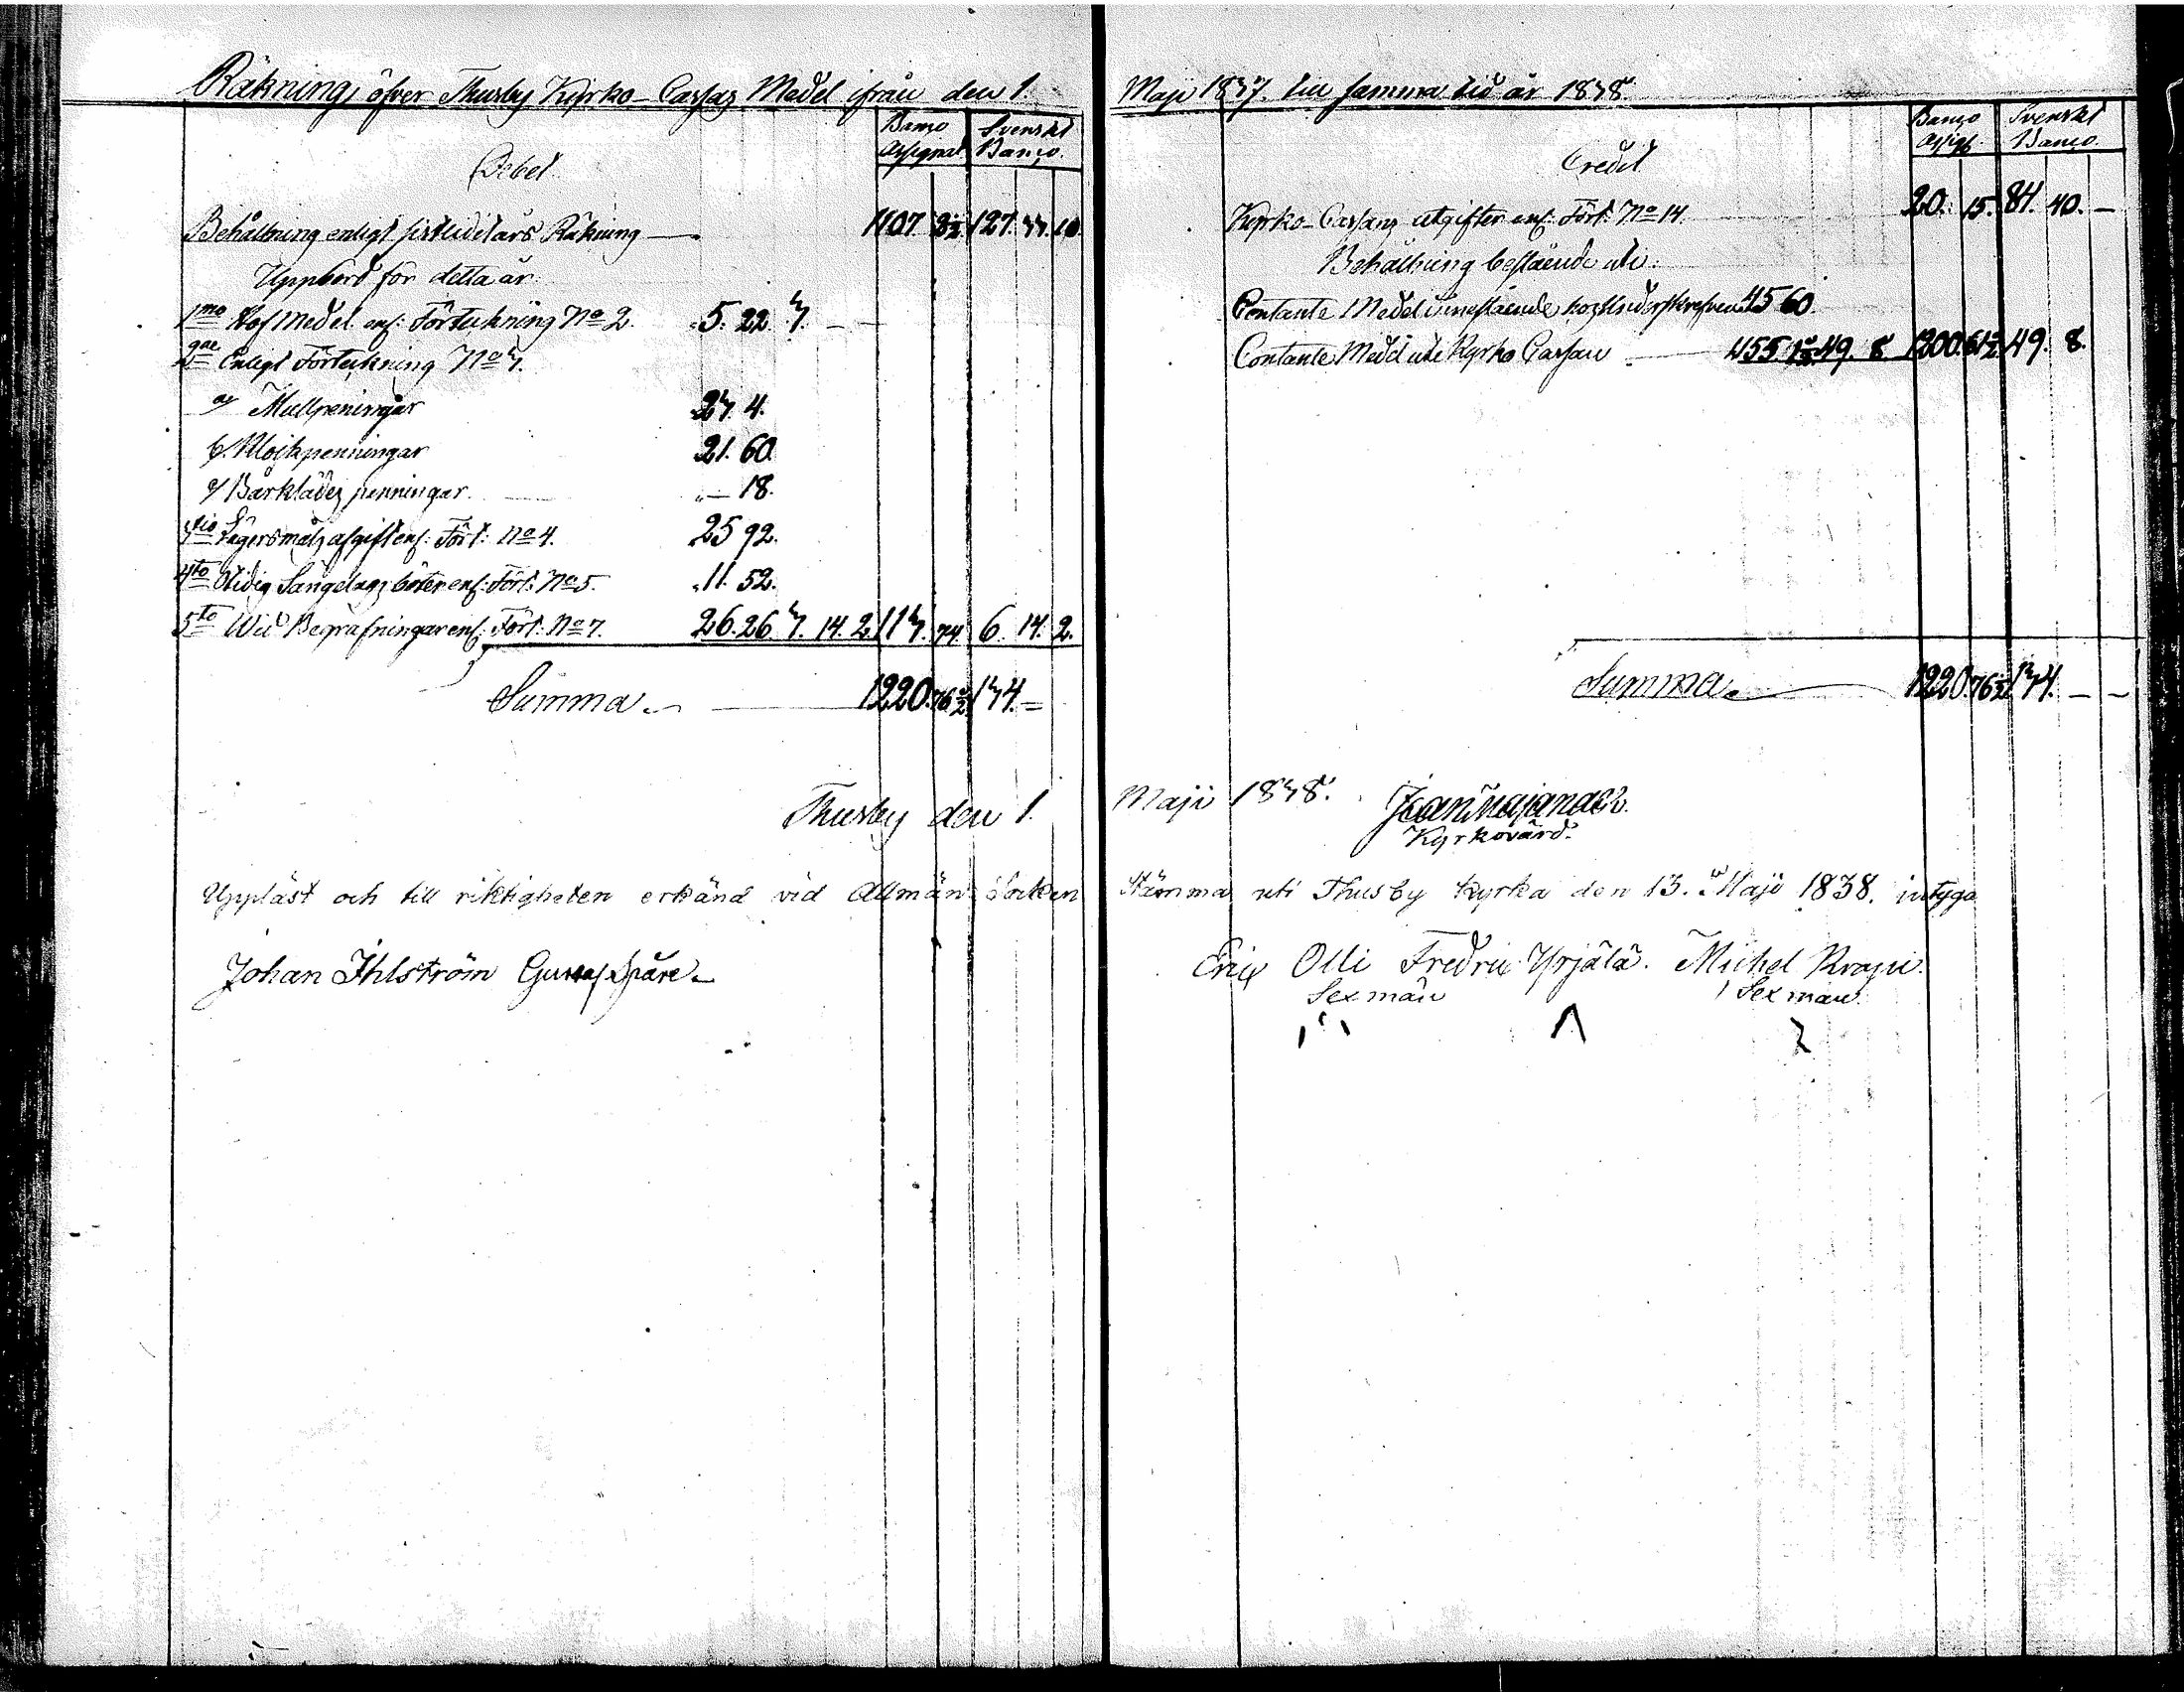 Räkning öfver Thusby Kyrko-Cassas Medel ifrån den 1. Maji 1837. till samma tid år 1838.
Debet.
Banco Assignat.
Svenskt Banco.
Behållning enligt sistledit års Räkning — 1107. 2½. 127. 33. 10.
Uppbörd för detta år.
1mo Hof Medel enl: Förtekning No 2. 5. 22. 3. — —
2dae Enligt Förtekning No 3.
a/ Mullpeningar 23. 4.
b/ Klockpenningar 21. 60.
c/ Bårklädes penningar. „— 18.
3tio Lägersmåls afgift enl: Fört: No 4. 25 92.
4to Otidig Sängelags böter enl: Fört: No 5. „11. 52.
5to Wid Begrafningar enl: Fört: No 7. 26. 26. 3. 14. 2. 113. 74. 6. 14. 2.
Summa. — 1220. 76½. 134. —
Credit.
Banco Assign.
Svenskt Banco.
Kyrko-Cassans utgifter enl: Fört: No 14. 20. 15. 84. 40. —
Behållning bestående uti:
Contante Medel innestående hos Undertskrefven 45 60.
Contante Medel uti Kyrko Cassan — 1½. 49. 8. 1200. 61½. 49. 8.
Summa. — 1220. 76½. 134. — —
Thusby den 1. Maji 1838.
Kyrkovärd.
Uppläst och till riktigheten erkänd vid Allmän Socken Stämma uti Thusby Kyrka den 13. Maji 1838. intyga
Johan Ihlström Gustaf Spåre. Eric Olli Fredric Yrjälä. Michel
Sexman Sexman